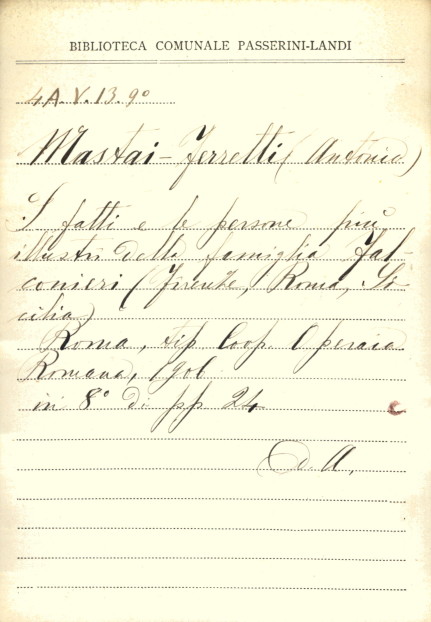 BIBLIOTECA COMUNALE PASSERINI-LANDI
4A.V.13.9°
Mastai-Ferretti (Antonio)
I fatti e le persone più
illustri della famiglia Fal-
conieri (Firenze, Roma, Si-
cilia)
Roma, tip Coop. Operaia
Romana, 1906
in 8° di pp 24
D. A.